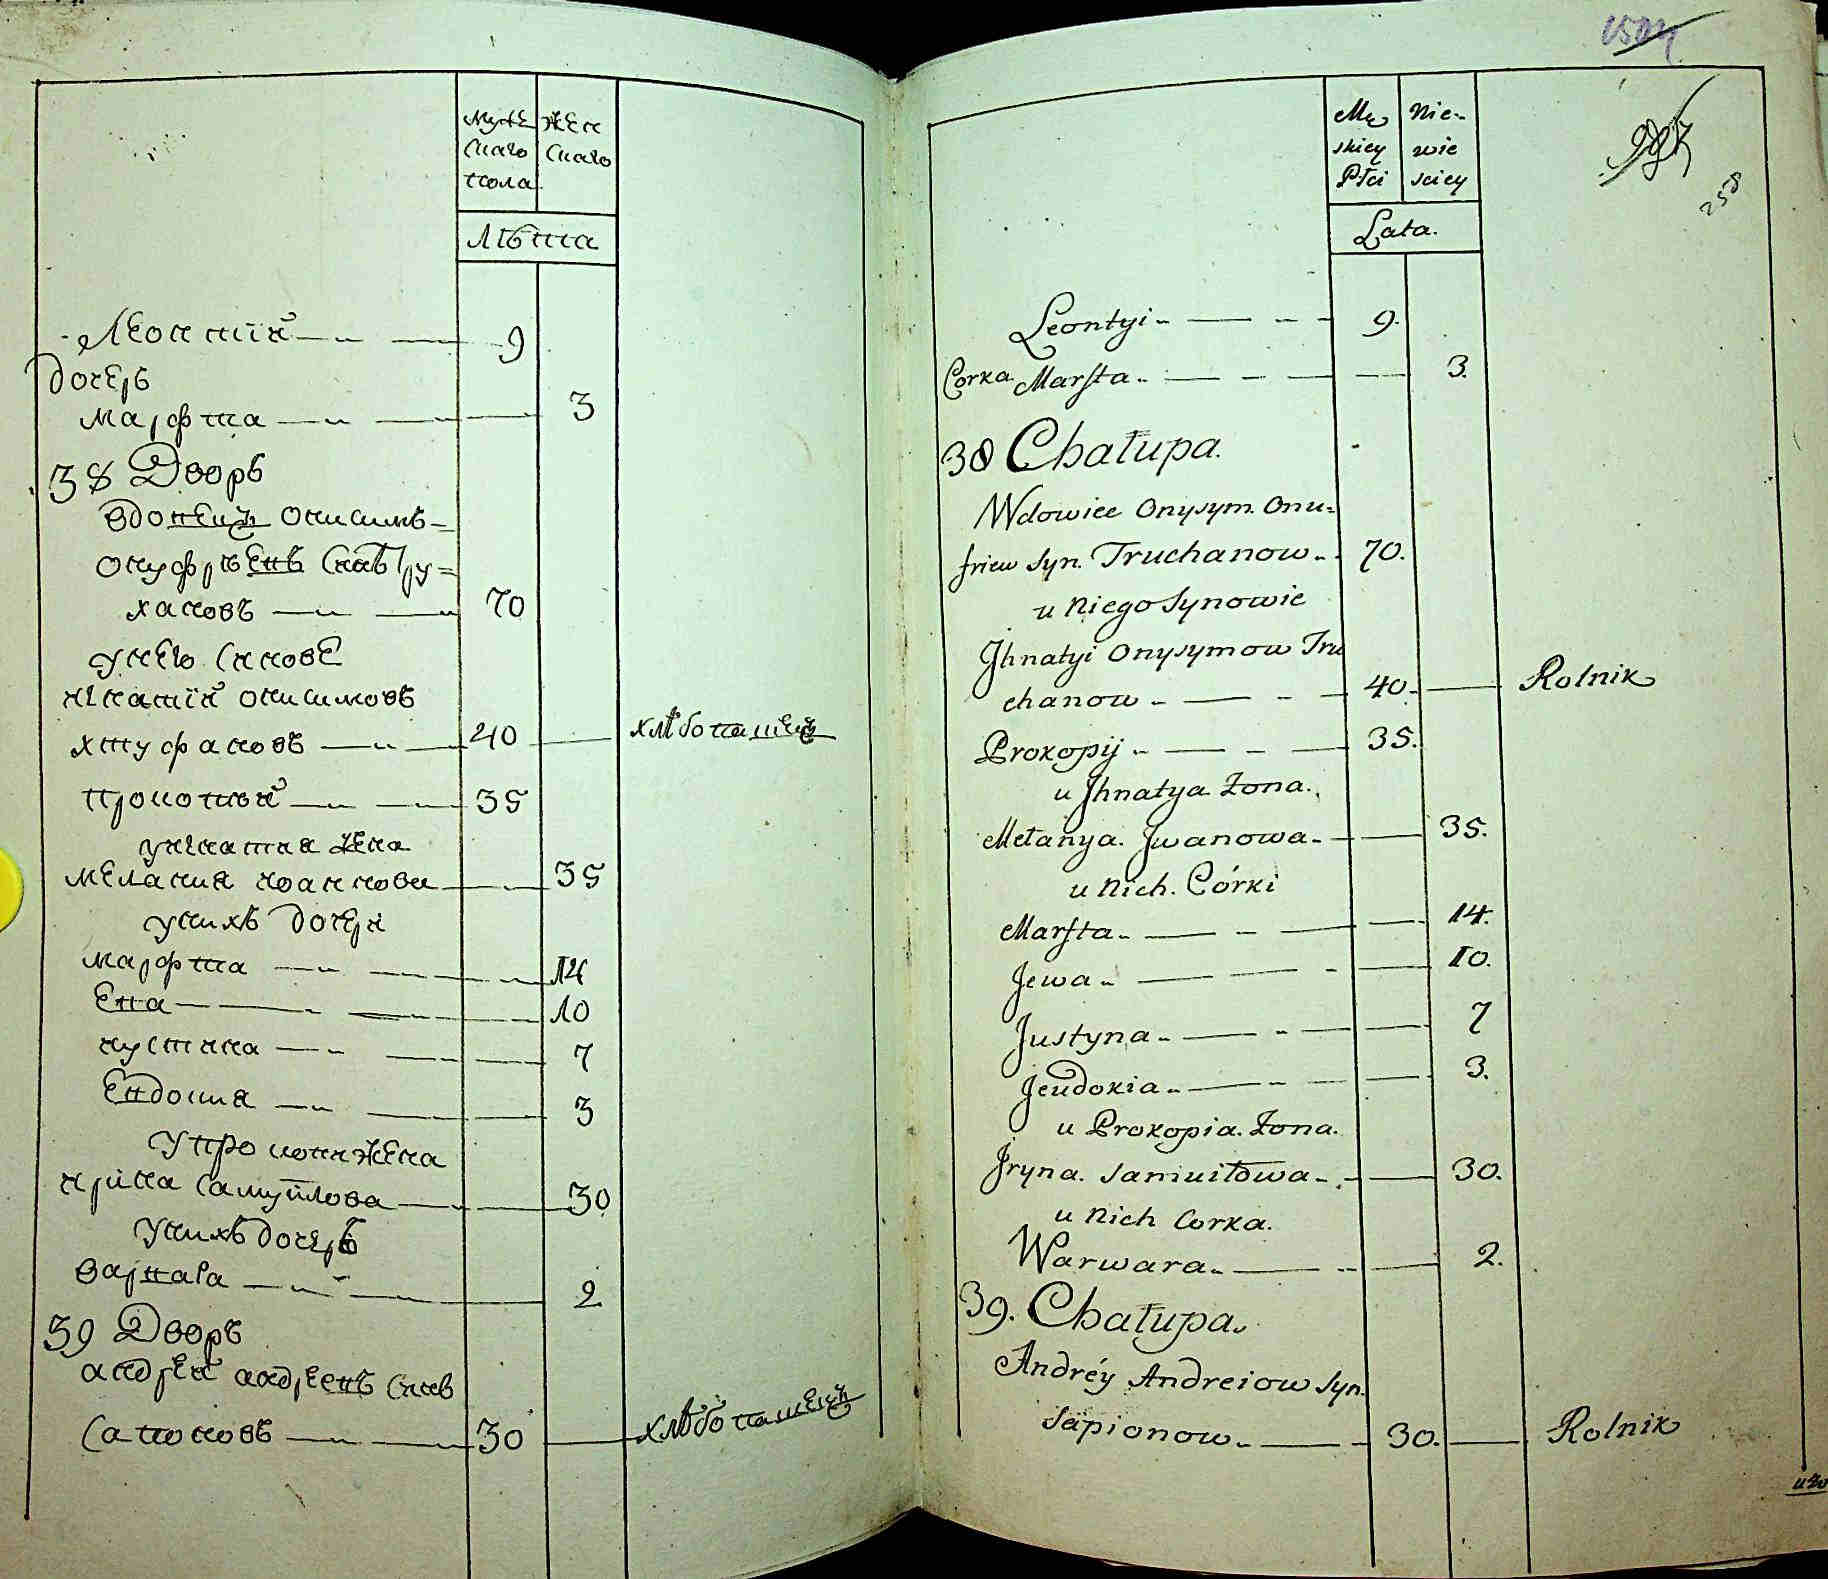 Муже
скаго
пола
Жен
скаго
Лѣта
Леонтій 9
дочерь
Марфта 3
38 Дворъ
вдовецъ Онисимъ
Онуфріевъ сынъ Тру=
хановъ 70
у него синове
Игнатій Онисимовъ
40 хлѣбопашецъ
Прокопій 35
у Игнатия жена
Мелания Иоаннова 35
у нихъ дочери
Марфта 14
Ева 10
Иустина 7
Евдокия 3
у Прокопия жена
Ирина Самуйлова 30
у нихъ дочерь
Варвара 2
39 Дворъ
Андрей Андреевъ сынъ
Сапоновъ 30 хлѣбопашецъ
Mę
skiey
Płci
Nie-
wie
sciey
Lata.
258
Leontyi 9.
Corka Marfta 3.
38 Chałupa.
Wdowiec Onysym Onu=
friew syn. Truchanow 70.
u Niego Synowie
Jhnatyi Onysymow Tru
chanow 40. Rolnik
Prokopij 35.
u Jhnatya Żona.
Mełanya. Jwanowa 35.
u Nich. Córki
Marfta 14.
Jewa 10.
Justyna 7
Jeudokia 3.
u Prokopia. Żona.
Jryna. Samuiłowa 30.
u Nich Corka.
Warwara 2.
39. Chałupa.
Andréy Andreiow syn.
Sapionow 30. Rolnik